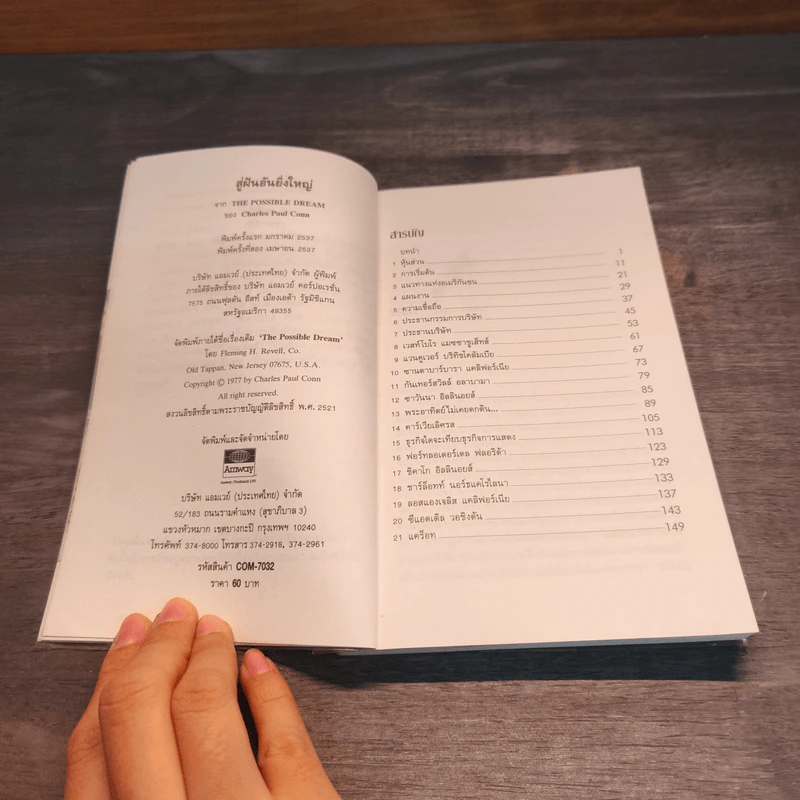 สู่ฝันอันยิ่งใหญ่
จาก THE POSSIBLE DREAM
ของ Charles Paul Conn
พิมพ์ครั้งแรก มกราคม 2537
พิมพ์ครั้งที่สอง เมษายน 2537
บริษัท แอมเวย์ (ประเทศไทย) จำกัด ผู้พิมพ์
ภายใต้ลิขสิทธิ์ของ บริษัท แอมเวย์ คอร์ปอเรชัน
7575 ถนนฟุลตัน อีสท์ เมืองเอด้า รัฐมิชิแกน
สหรัฐอเมริกา 49355
จัดพิมพ์ภายใต้ชื่อเรื่องเดิม 'The Possible Dream'
โดย Fleming H. Revell, Co.
Old Tappan, New Jersey 07675, U.S.A.
Copyright © 1977 by Charles Paul Conn
All right reserved.
สงวนลิขสิทธิ์ตามพระราชบัญญัติลิขสิทธิ์ พ.ศ. 2521
จัดพิมพ์และจัดจำหน่ายโดย
Amway
บริษัท แอมเวย์ (ประเทศไทย) จำกัด
52/183 ถนนรามคำแหง (สุขาภิบาล 3)
แขวงหัวหมาก เขตบางกะปิ กรุงเทพฯ 10240
โทรศัพท์ 374-8000 โทรสาร 374-2918, 374-2961
รหัสสินค้า COM-7032
ราคา 60 บาท
สารบัญ
บทนำ 1
1 หุ้นส่วน 11
2 การเริ่มต้น 21
3 แนวทางแห่งอเมริกันชน 29
4 แผนงาน 37
5 ความเชื่อถือ 45
6 ประธานกรรมการบริษัท 53
7 ประธานบริษัท 61
8 เวสท์โบโร แมซซาชูเส็ทส์ 67
9 แวนคูเวอร์ บริทิชโคลัมเบีย 73
10 ซานตาบาร์บารา แคลิฟอร์เนีย 79
11 กันเทอร์สวิลล์ อลาบามา 85
12 ซาวันนา อิลลินอยส์ 89
13 พระอาทิตย์ไม่เคยตกดิน... 105
14 คาร์เวียเลิศรส 113
15 ธุรกิจใดจะเทียบธุรกิจการแสดง 123
16 ฟอร์ทลอเดอร์เดล ฟลอริด้า 129
17 ชิคาโก อิลลินอยส์ 133
18 ชาร์ล็อทท์ นอร์ธแคโรไลนา 137
19 ลอสแองเจลิส แคลิฟอร์เนีย 143
20 ซีแอตเติล วอชิงตัน 149
21 แคร็อท